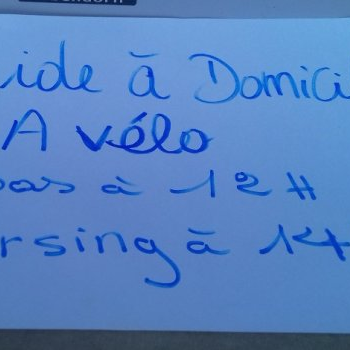 ide à Domici
A vélo
pas à 12H
rsing à 14